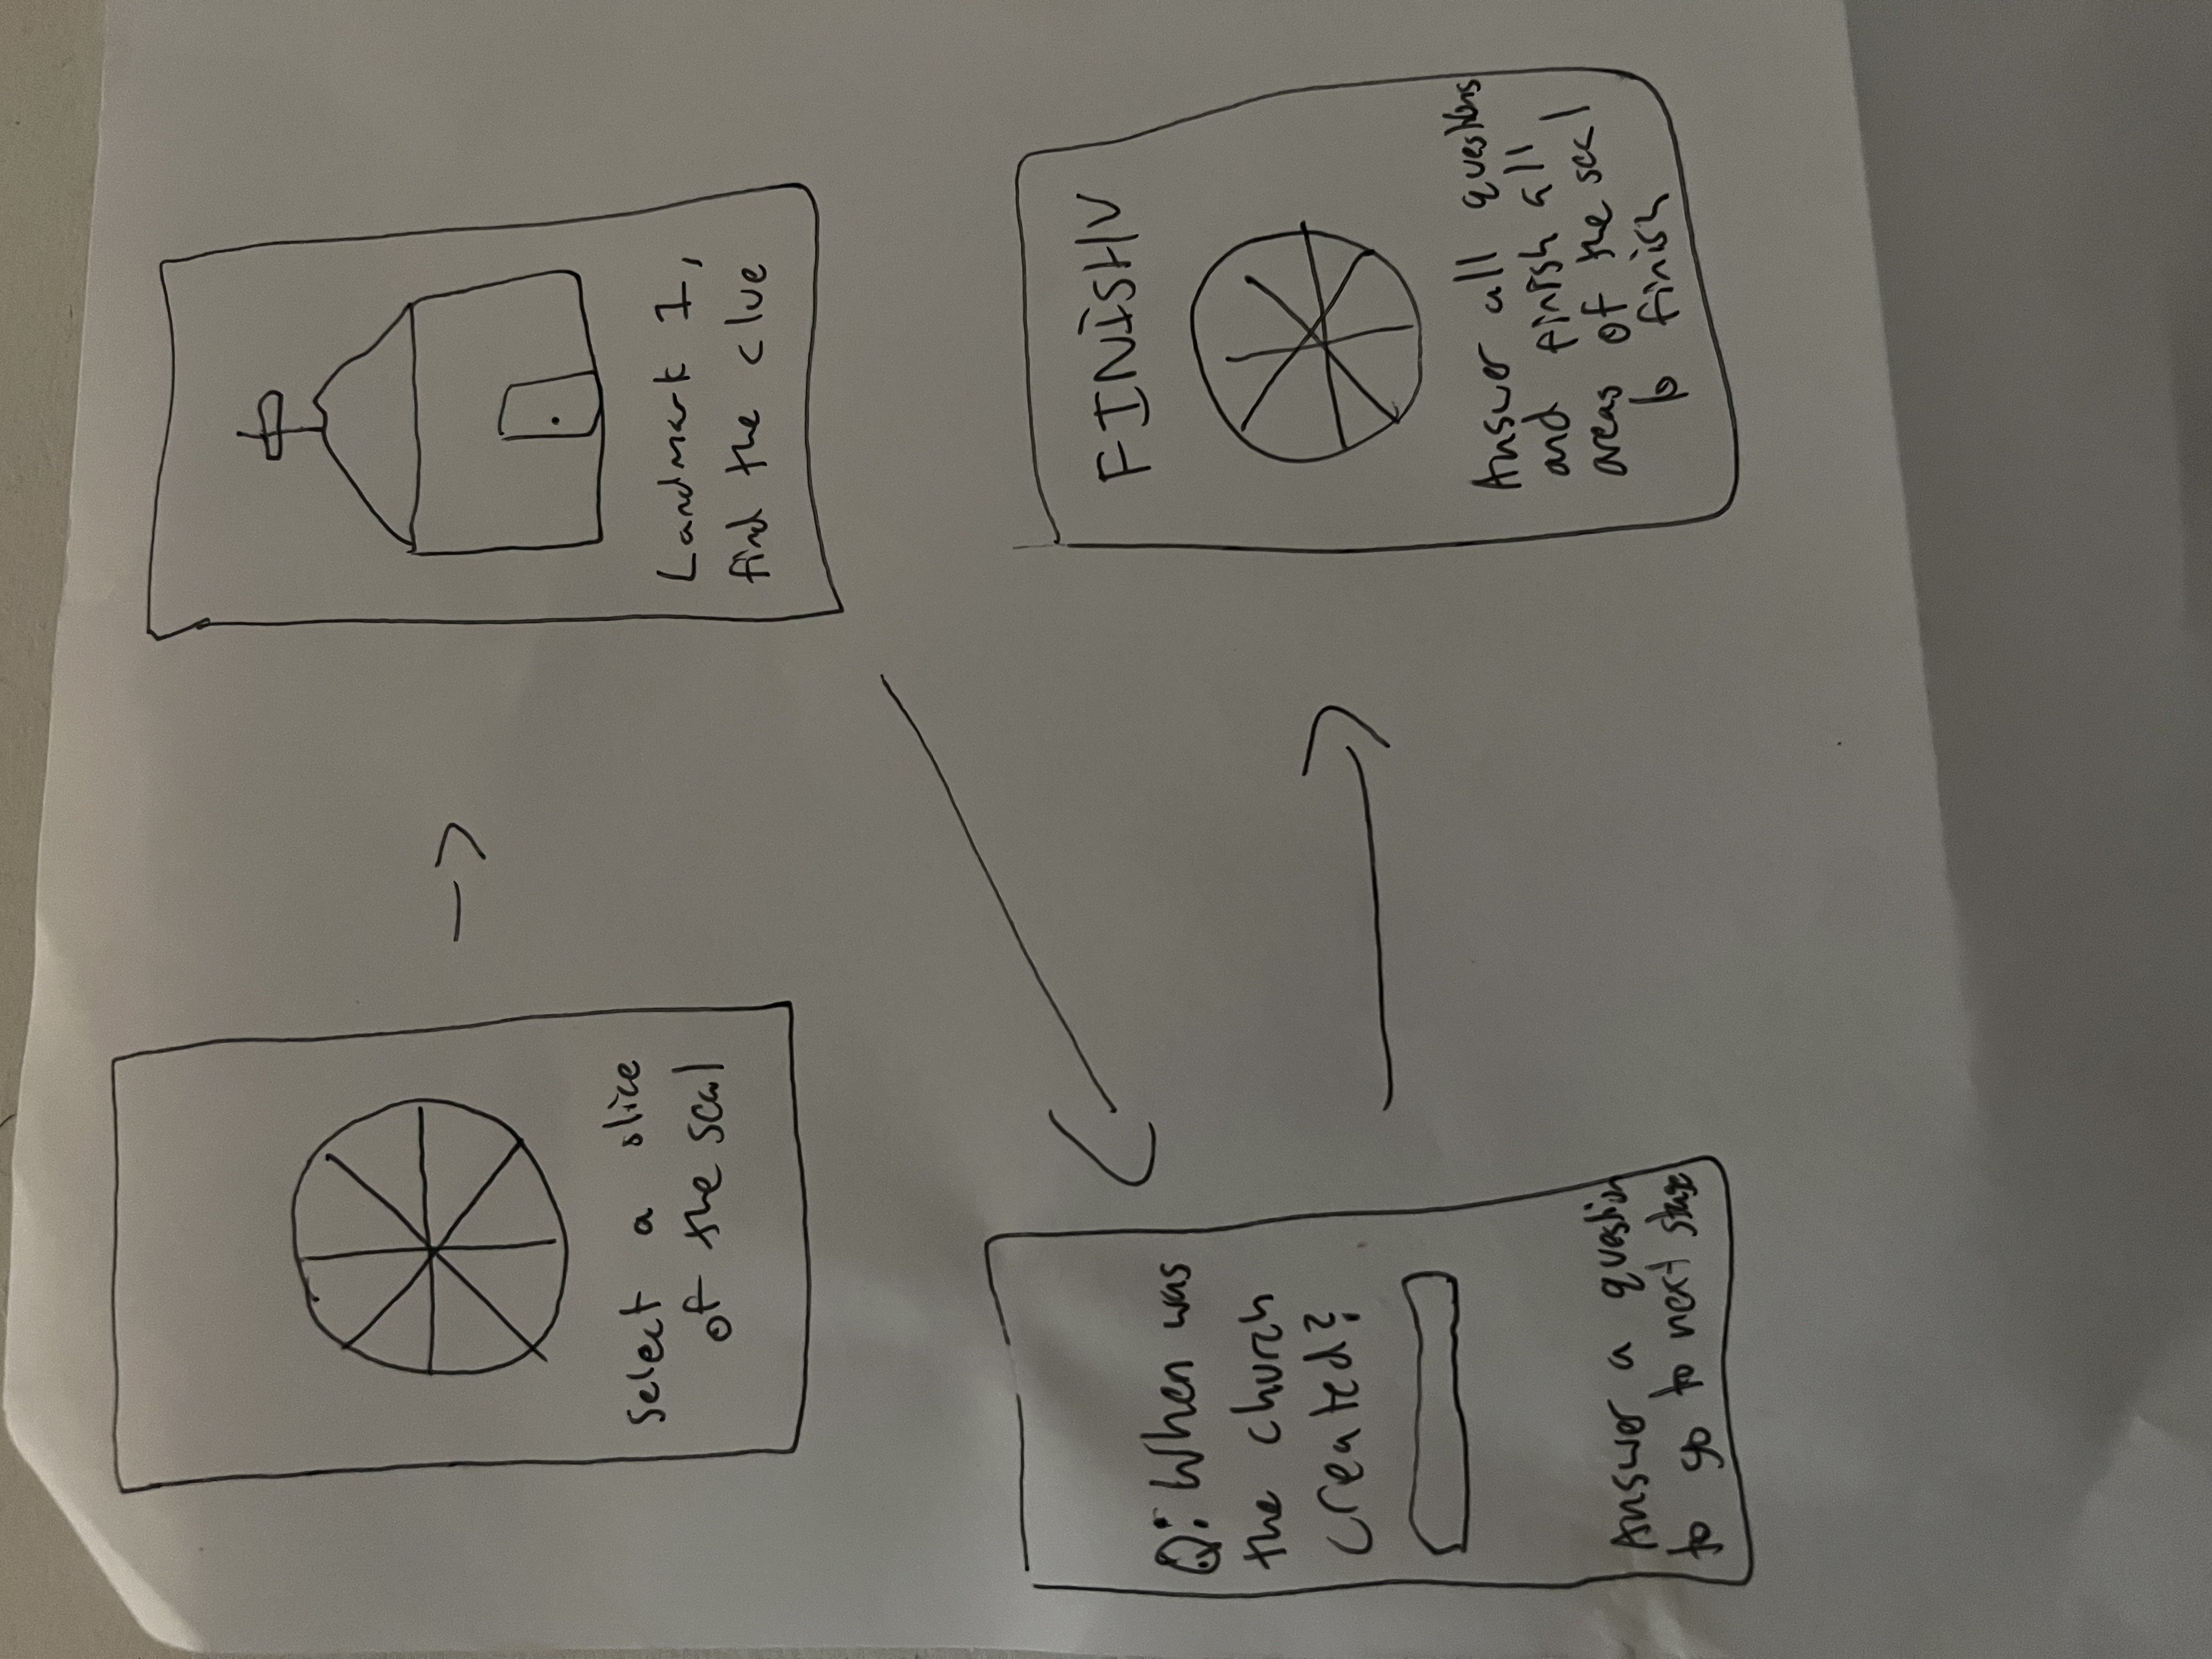 Select a slice
of the seal
Landmark 1,
find the clue
Q: When was
the church
created?
Answer a question
to go to next stage
FINISH
Answer all questions
and finish all
areas of the seal
to finish